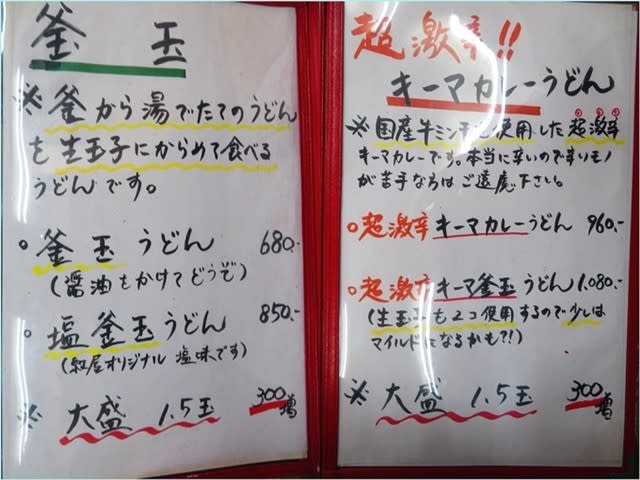 釜玉
※釜から湯でたてのうどん
を生玉子にからめて食べる
うどんです。
○釜玉うどん 680.-
(醤油をかけてどうぞ)
○塩釜玉うどん 850.-
(釵屋オリジナル 塩味です)
※大盛 1.5玉 300増
超激辛!!
キーマカレーうどん
※国産牛ミンチを使用した超激辛
キーマカレーです。本当に辛いので辛いモノ
が苦手な方はご遠慮下さい。
○超激辛キーマカレーうどん 960.-
○超激辛キーマ釜玉うどん 1,080.-
(生玉子も2コ使用するので少しは
マイルドになるかも?!)
※大盛 1.5玉 300増